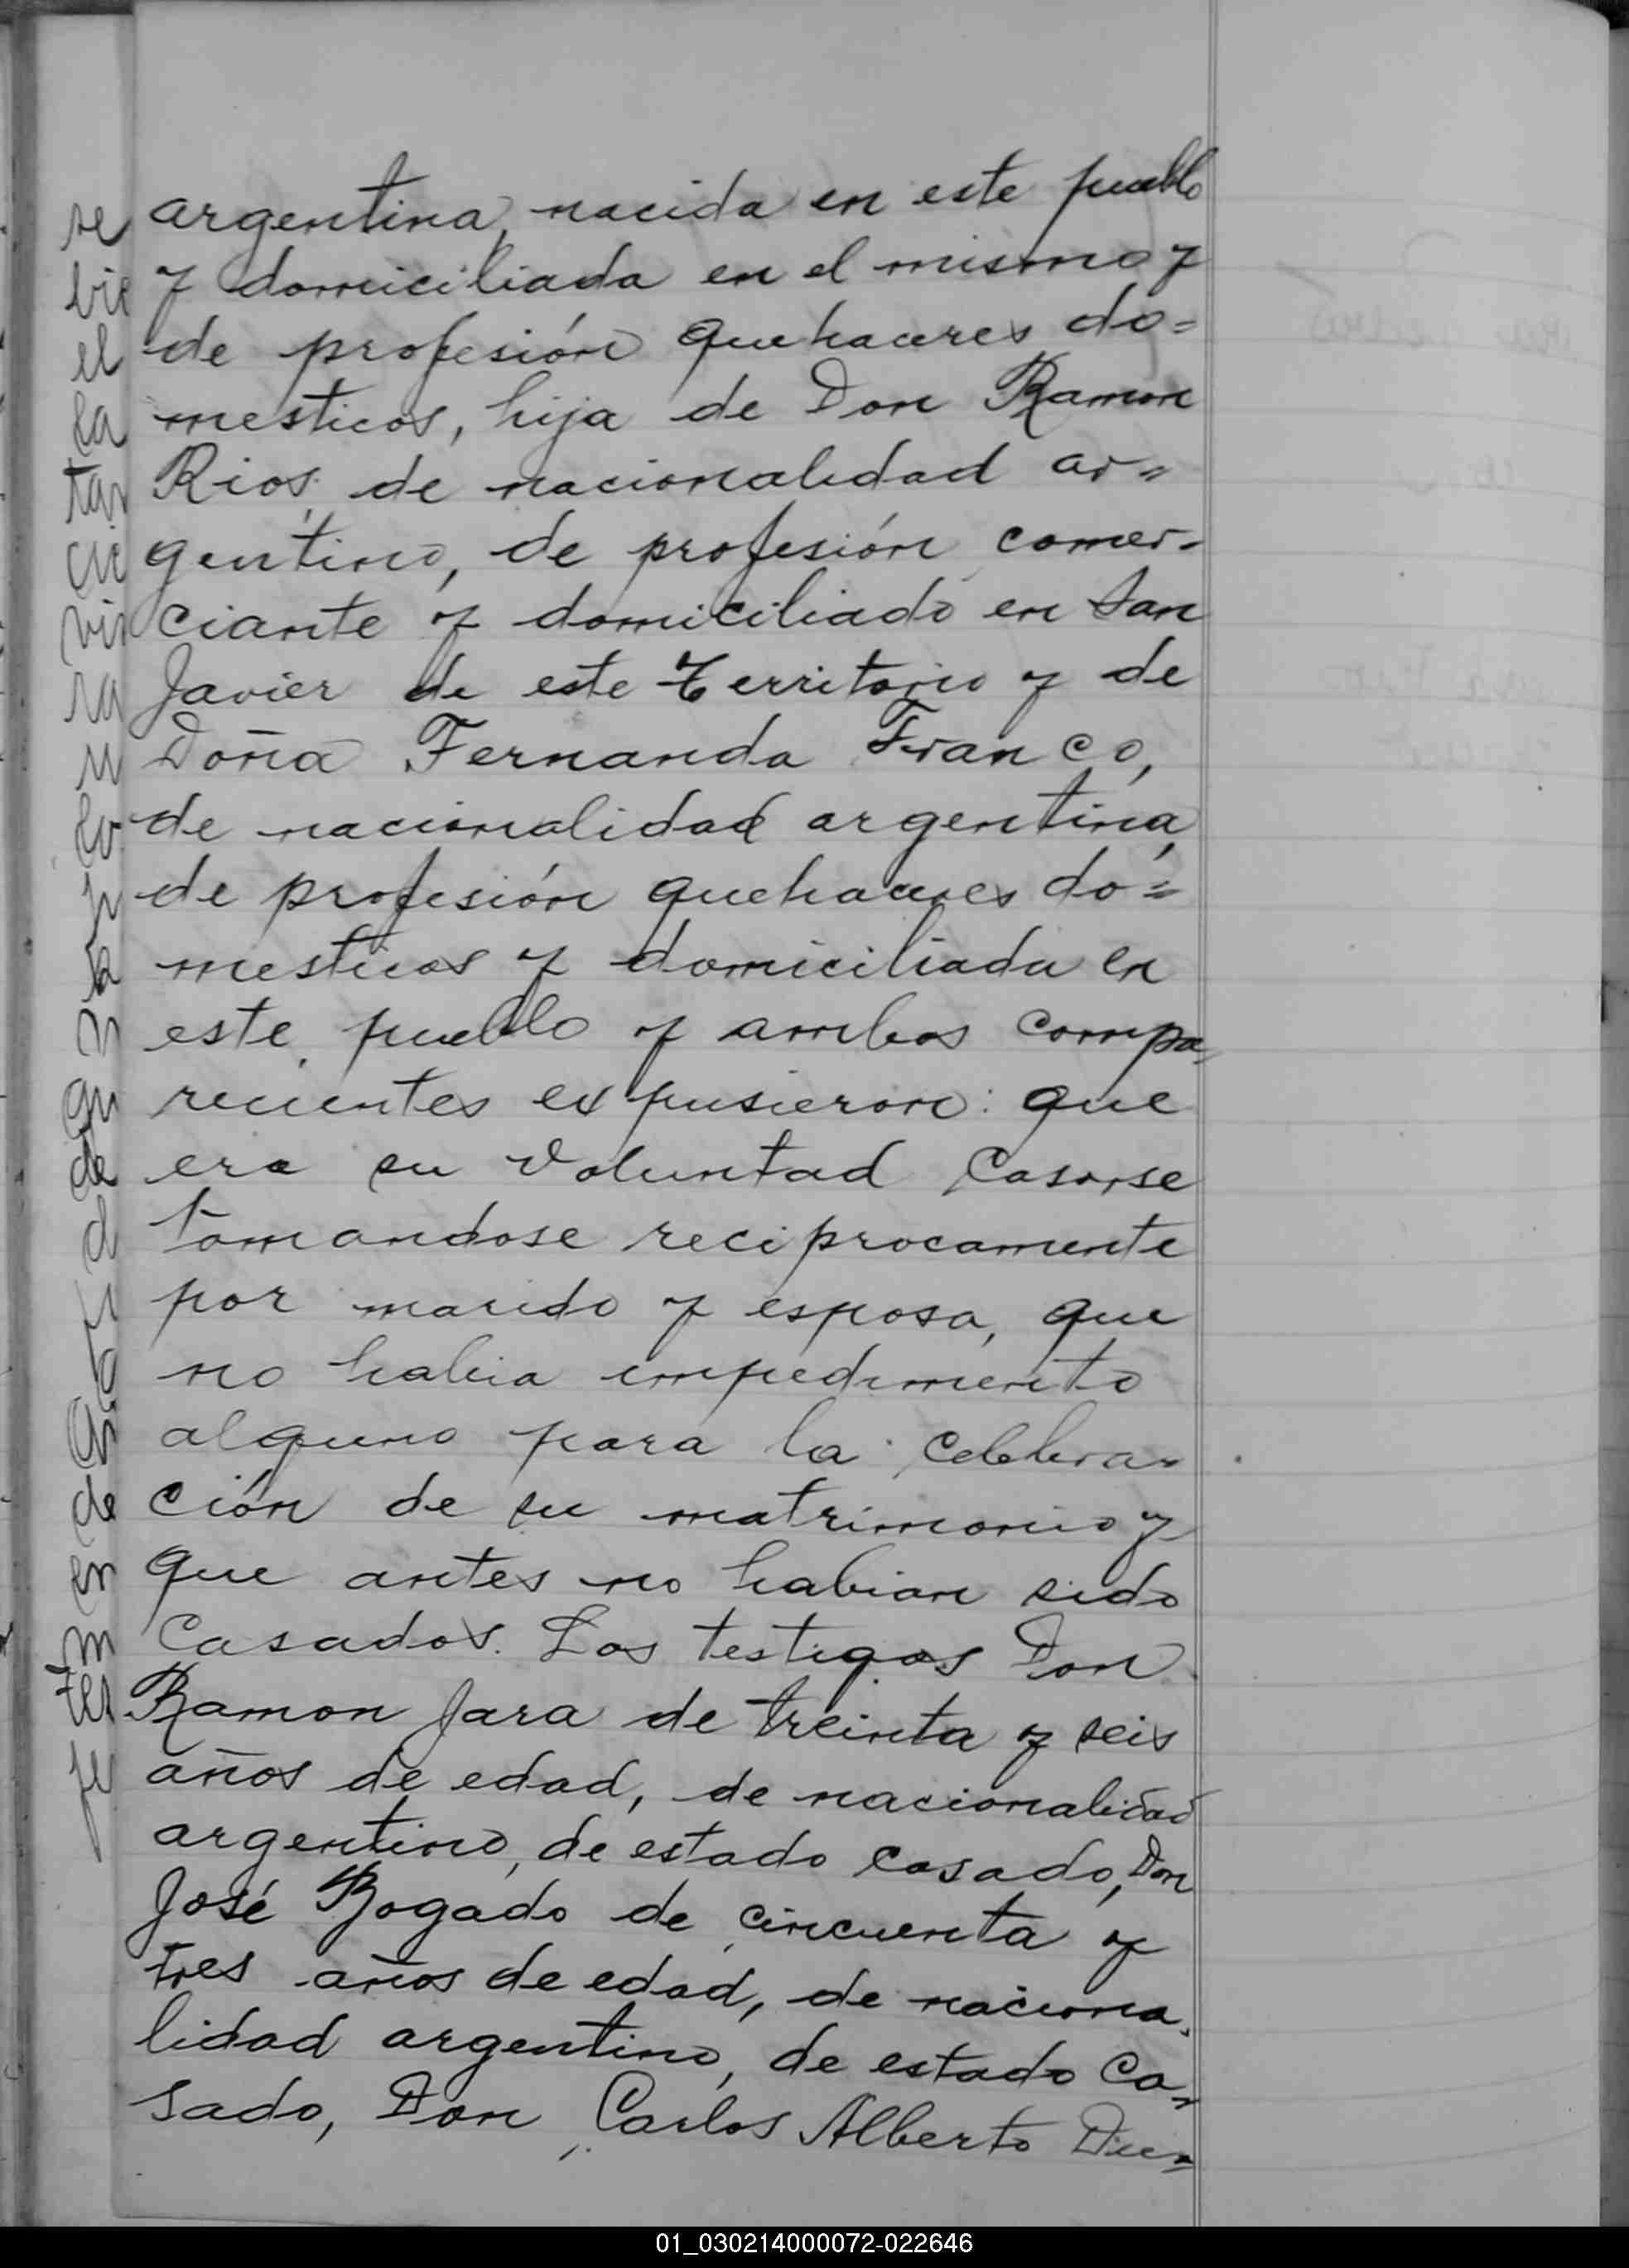 argentina, nacida en este pueblo
y domiciliada en el mismo y
de profesión quehaceres do=
mesticos, hija de Don Ramon
Rios, de nacionalidad ar=
gentino, de profesión comer-
ciante y domiciliado en San
Javier de este Territorio y de
Doña Fernanda Franco,
de nacionalidad argentina,
de profesión quehaceres do=
mesticos y domiciliada en
este pueblo y ambos compa-
recientes expusieron: que
era su voluntad casarse
tomandose reciprocamente
por marido y esposa, que
no habia impedimento
alguno para la celebra-
ción de su matrimonio y
que antes no habian sido
casados. Los testigos Don
Ramon Jara de treinta y seis
años de edad, de nacionalidad
argentino, de estado casado, Don
José Bogado de cincuenta y
tres años de edad, de naciona-
lidad argentino, de estado ca-
sado, Don Carlos Alberto
se
el
la
de
en
01_030214000072-022646